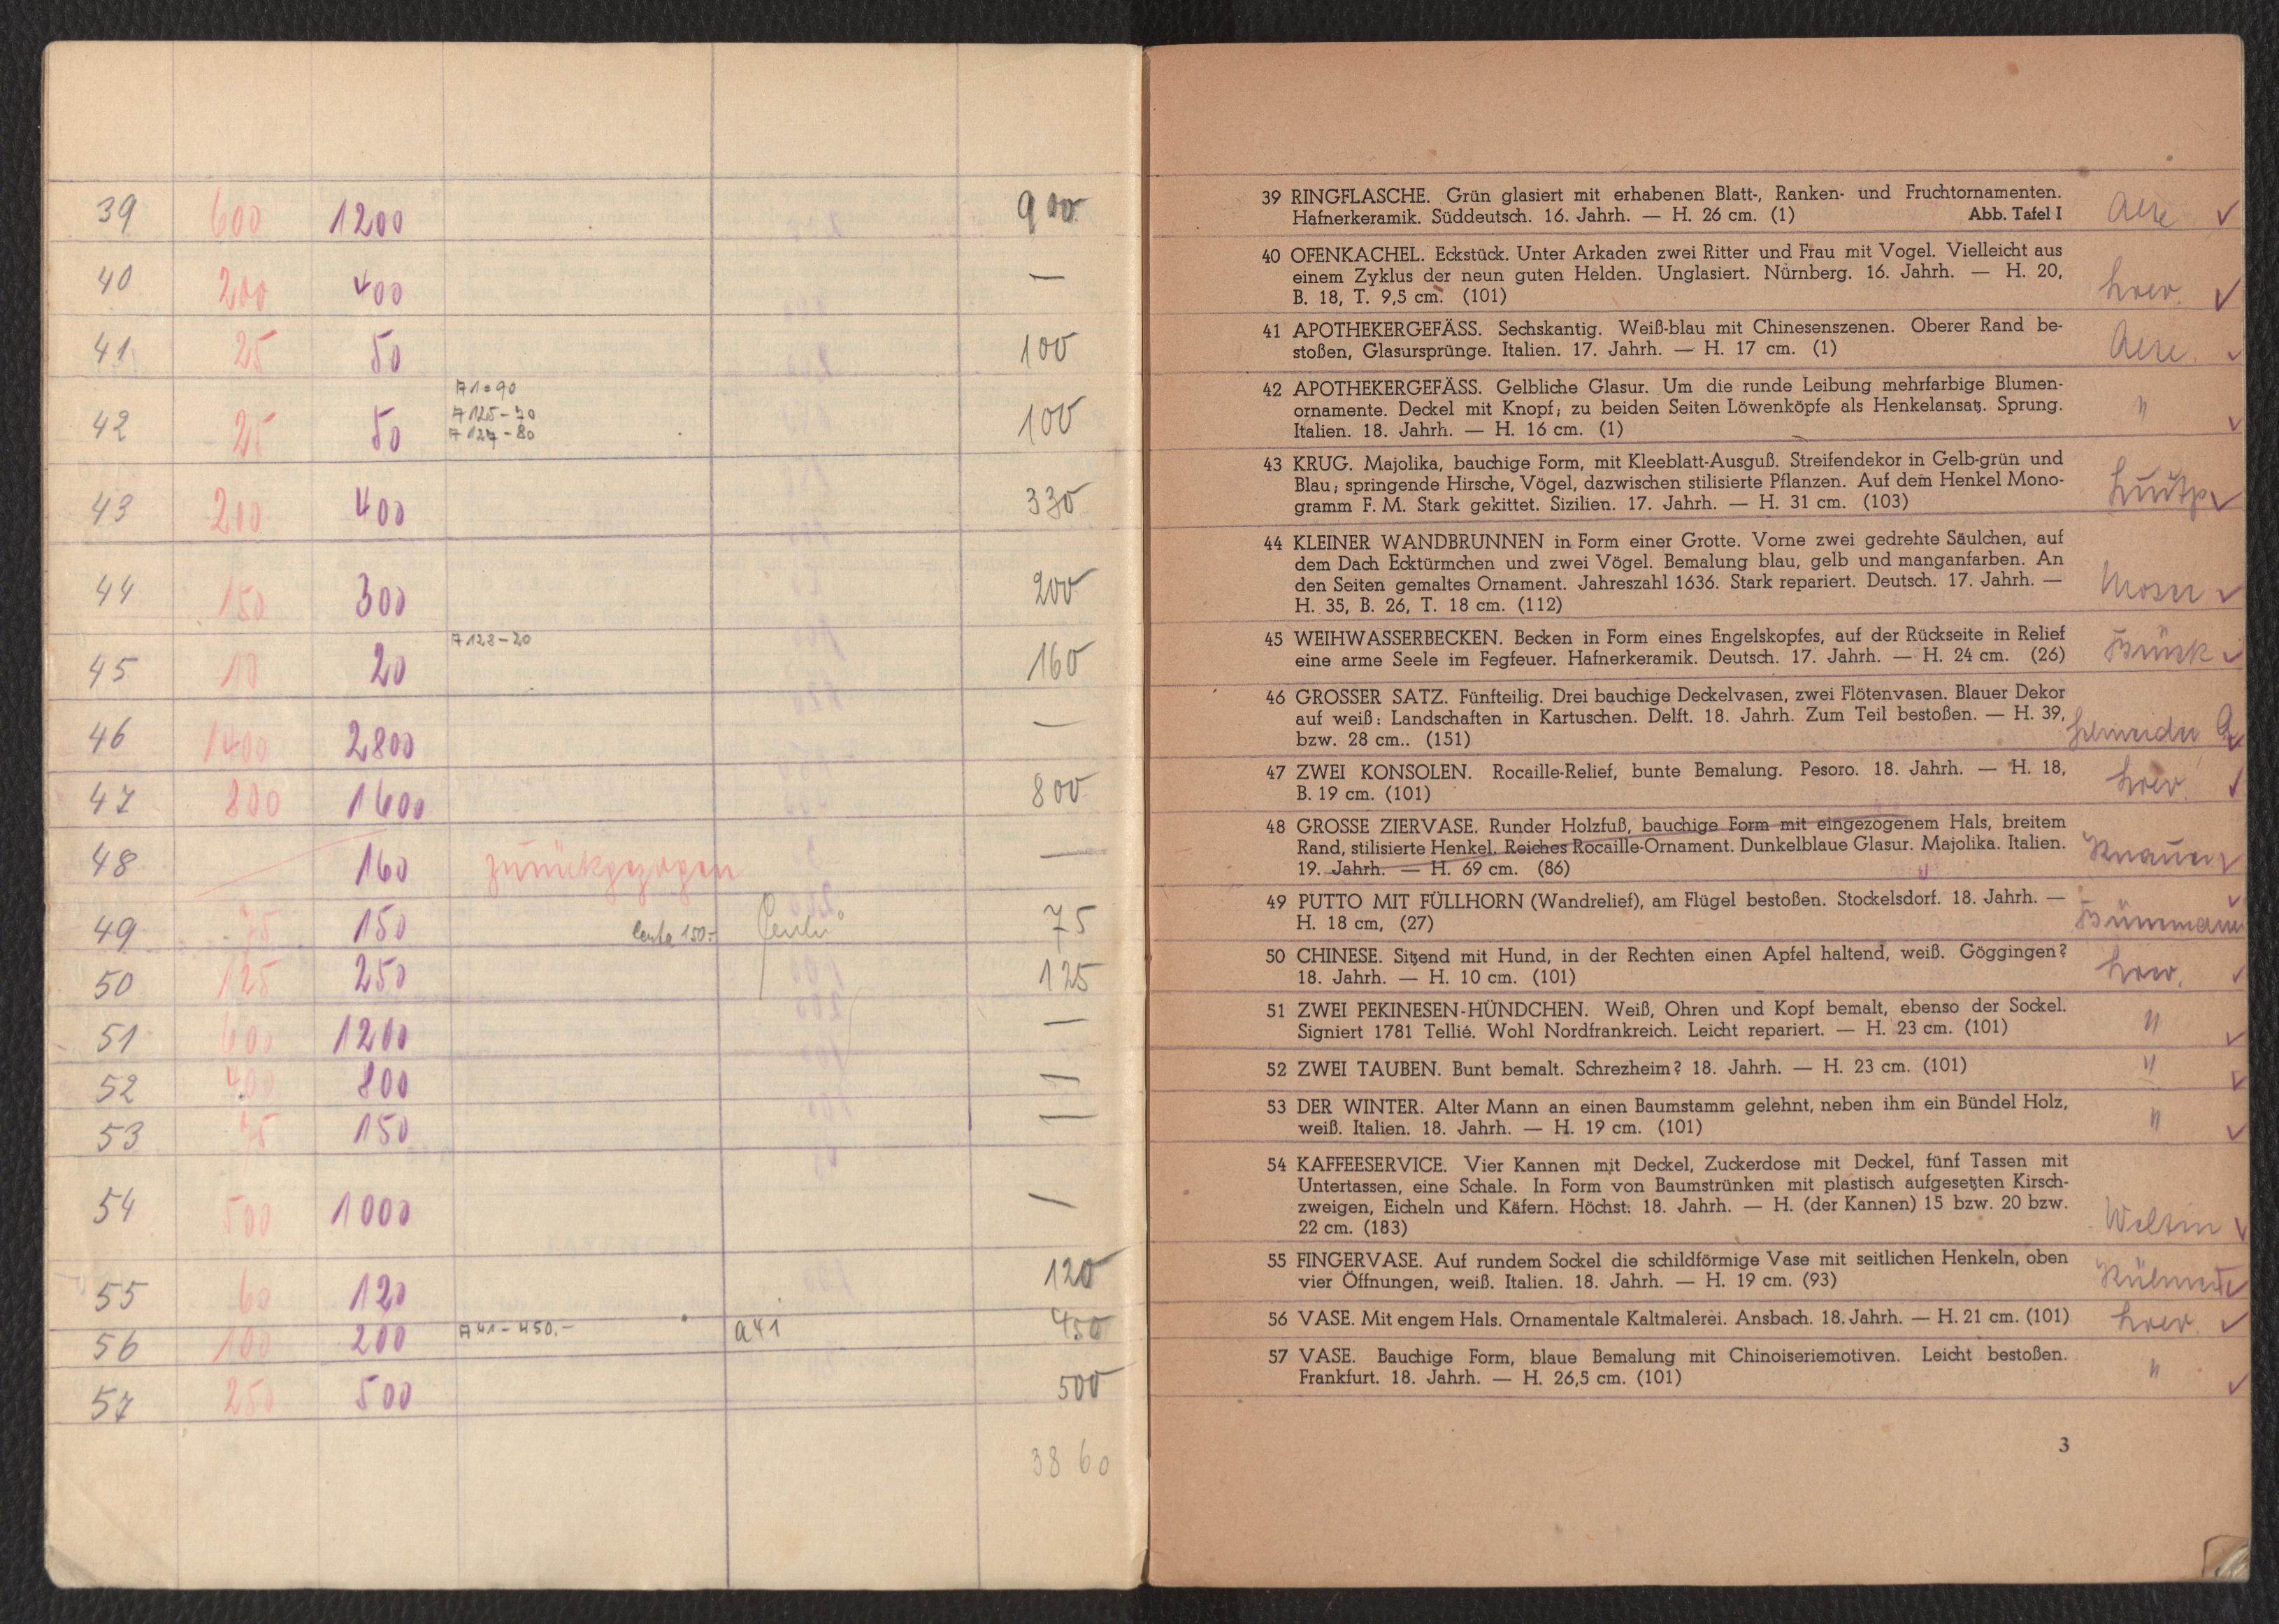 39 600 1200 900
40 200 400 —
41 25 50 100
A1=90
A125-70
42 25 50 A127-80 100
43 200 400 330
44 150 300 200
A128-20
45 10 20 160
46 1400 2800 —
47 800 1600 800
48 160 zurückgezogen —
49 75 150 150.- 75
50 125 250 125
51 600 1200 —
52 400 800 —
53 75 150 —
54 500 1000 —
55 60 120 120
56 100 200 A41-450.- a41 450
57 250 500 500
3860
39 RINGFLASCHE. Grün glasiert mit erhabenen Blatt-, Ranken- und Fruchtornamenten.
Hafnerkeramik. Süddeutsch. 16. Jahrh. — H. 26 cm. (1) Abb. Tafel I
40 OFENKACHEL. Eckstück. Unter Arkaden zwei Ritter und Frau mit Vogel. Vielleicht aus
einem Zyklus der neun guten Helden. Unglasiert. Nürnberg. 16. Jahrh. — H. 20,
B. 18, T. 9,5 cm. (101)
41 APOTHEKERGEFÄSS. Sechskantig. Weiß-blau mit Chinesenszenen. Oberer Rand be-
stoßen, Glasursprünge. Italien. 17. Jahrh. — H. 17 cm. (1)
42 APOTHEKERGEFÄSS. Gelbliche Glasur. Um die runde Leibung mehrfarbige Blumen-
ornamente. Deckel mit Knopf; zu beiden Seiten Löwenköpfe als Henkelansatz. Sprung. "
Italien. 18. Jahrh. — H. 16 cm. (1)
43 KRUG. Majolika, bauchige Form, mit Kleeblatt-Ausguß. Streifendekor in Gelb-grün und
Blau; springende Hirsche, Vögel, dazwischen stilisierte Pflanzen. Auf dem Henkel Mono-
gramm F. M. Stark gekittet. Sizilien. 17. Jahrh. — H. 31 cm. (103)
44 KLEINER WANDBRUNNEN in Form einer Grotte. Vorne zwei gedrehte Säulchen, auf
dem Dach Ecktürmchen und zwei Vögel. Bemalung blau, gelb und manganfarben. An
den Seiten gemaltes Ornament. Jahreszahl 1636. Stark repariert. Deutsch. 17. Jahrh. — Moser
H. 35, B. 26, T. 18 cm. (112)
45 WEIHWASSERBECKEN. Becken in Form eines Engelskopfes, auf der Rückseite in Relief
eine arme Seele im Fegfeuer. Hafnerkeramik. Deutsch. 17. Jahrh. — H. 24 cm. (26)
46 GROSSER SATZ. Fünfteilig. Drei bauchige Deckelvasen, zwei Flötenvasen. Blauer Dekor
auf weiß: Landschaften in Kartuschen. Delft. 18. Jahrh. Zum Teil bestoßen. — H. 39,
bzw. 28 cm.. (151)
47 ZWEI KONSOLEN. Rocaille-Relief, bunte Bemalung. Pesoro. 18. Jahrh. — H. 18,
B. 19 cm. (101)
48 GROSSE ZIERVASE. Runder Holzfuß, bauchige Form mit eingezogenem Hals, breitem
Rand, stilisierte Henkel. Reiches Rocaille-Ornament. Dunkelblaue Glasur. Majolika. Italien.
19. Jahrh. — H. 69 cm. (86)
49 PUTTO MIT FÜLLHORN (Wandrelief), am Flügel bestoßen. Stockelsdorf. 18. Jahrh. —
H. 18 cm, (27)
50 CHINESE. Sitzend mit Hund, in der Rechten einen Apfel haltend, weiß. Göggingen?
18. Jahrh. — H. 10 cm. (101)
51 ZWEI PEKINESEN-HÜNDCHEN. Weiß, Ohren und Kopf bemalt, ebenso der Sockel.
Signiert 1781 Tellié. Wohl Nordfrankreich. Leicht repariert. — H. 23 cm. (101) "
52 ZWEI TAUBEN. Bunt bemalt. Schrezheim? 18. Jahrh. — H. 23 cm. (101) "
53 DER WINTER. Alter Mann an einen Baumstamm gelehnt, neben ihm ein Bündel Holz,
weiß. Italien. 18. Jahrh. — H. 19 cm. (101) "
54 KAFFEESERVICE. Vier Kannen mit Deckel, Zuckerdose mit Deckel, fünf Tassen mit
Untertassen, eine Schale. In Form von Baumstrünken mit plastisch aufgesetzten Kirsch-
zweigen, Eicheln und Käfern. Höchst. 18. Jahrh. — H. (der Kannen) 15 bzw. 20 bzw.
22 cm. (183)
55 FINGERVASE. Auf rundem Sockel die schildförmige Vase mit seitlichen Henkeln, oben
vier Öffnungen, weiß. Italien. 18. Jahrh. — H. 19 cm. (93)
56 VASE. Mit engem Hals. Ornamentale Kaltmalerei. Ansbach. 18. Jahrh. — H. 21 cm. (101)
57 VASE. Bauchige Form, blaue Bemalung mit Chinoiseriemotiven. Leicht bestoßen.
Frankfurt. 18. Jahrh. — H. 26,5 cm. (101) "
3